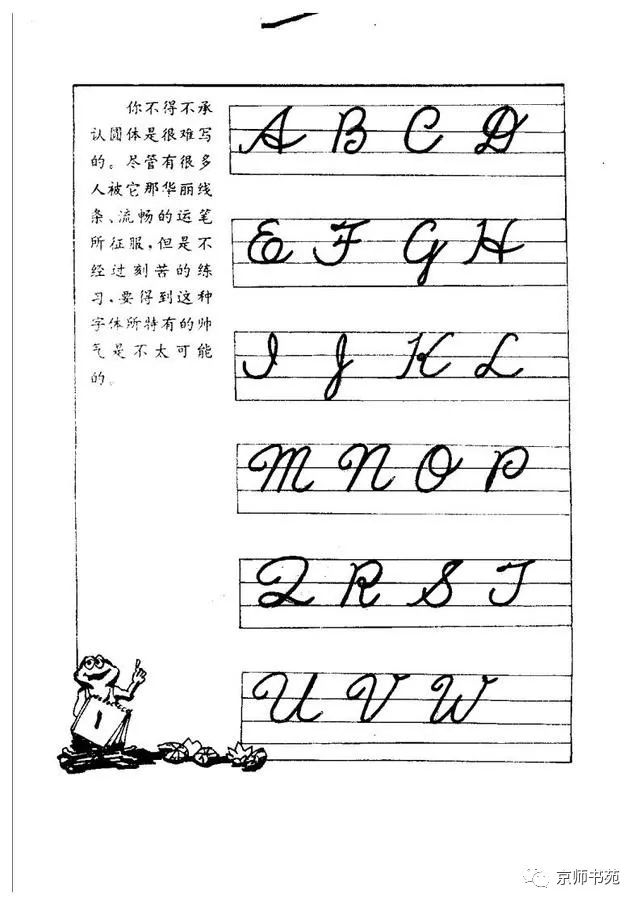 你不得不承
认圆体是很难写
的。尽管有很多
人被它那华丽线
条、流畅的运笔
所征服,但是不
经过刻苦的练
习,要得到这种
字体所特有的帅
气是不太可能
的。
A B C D
E F G H
I J K L
M N O P
Q R S T
U V W
1
京师书苑